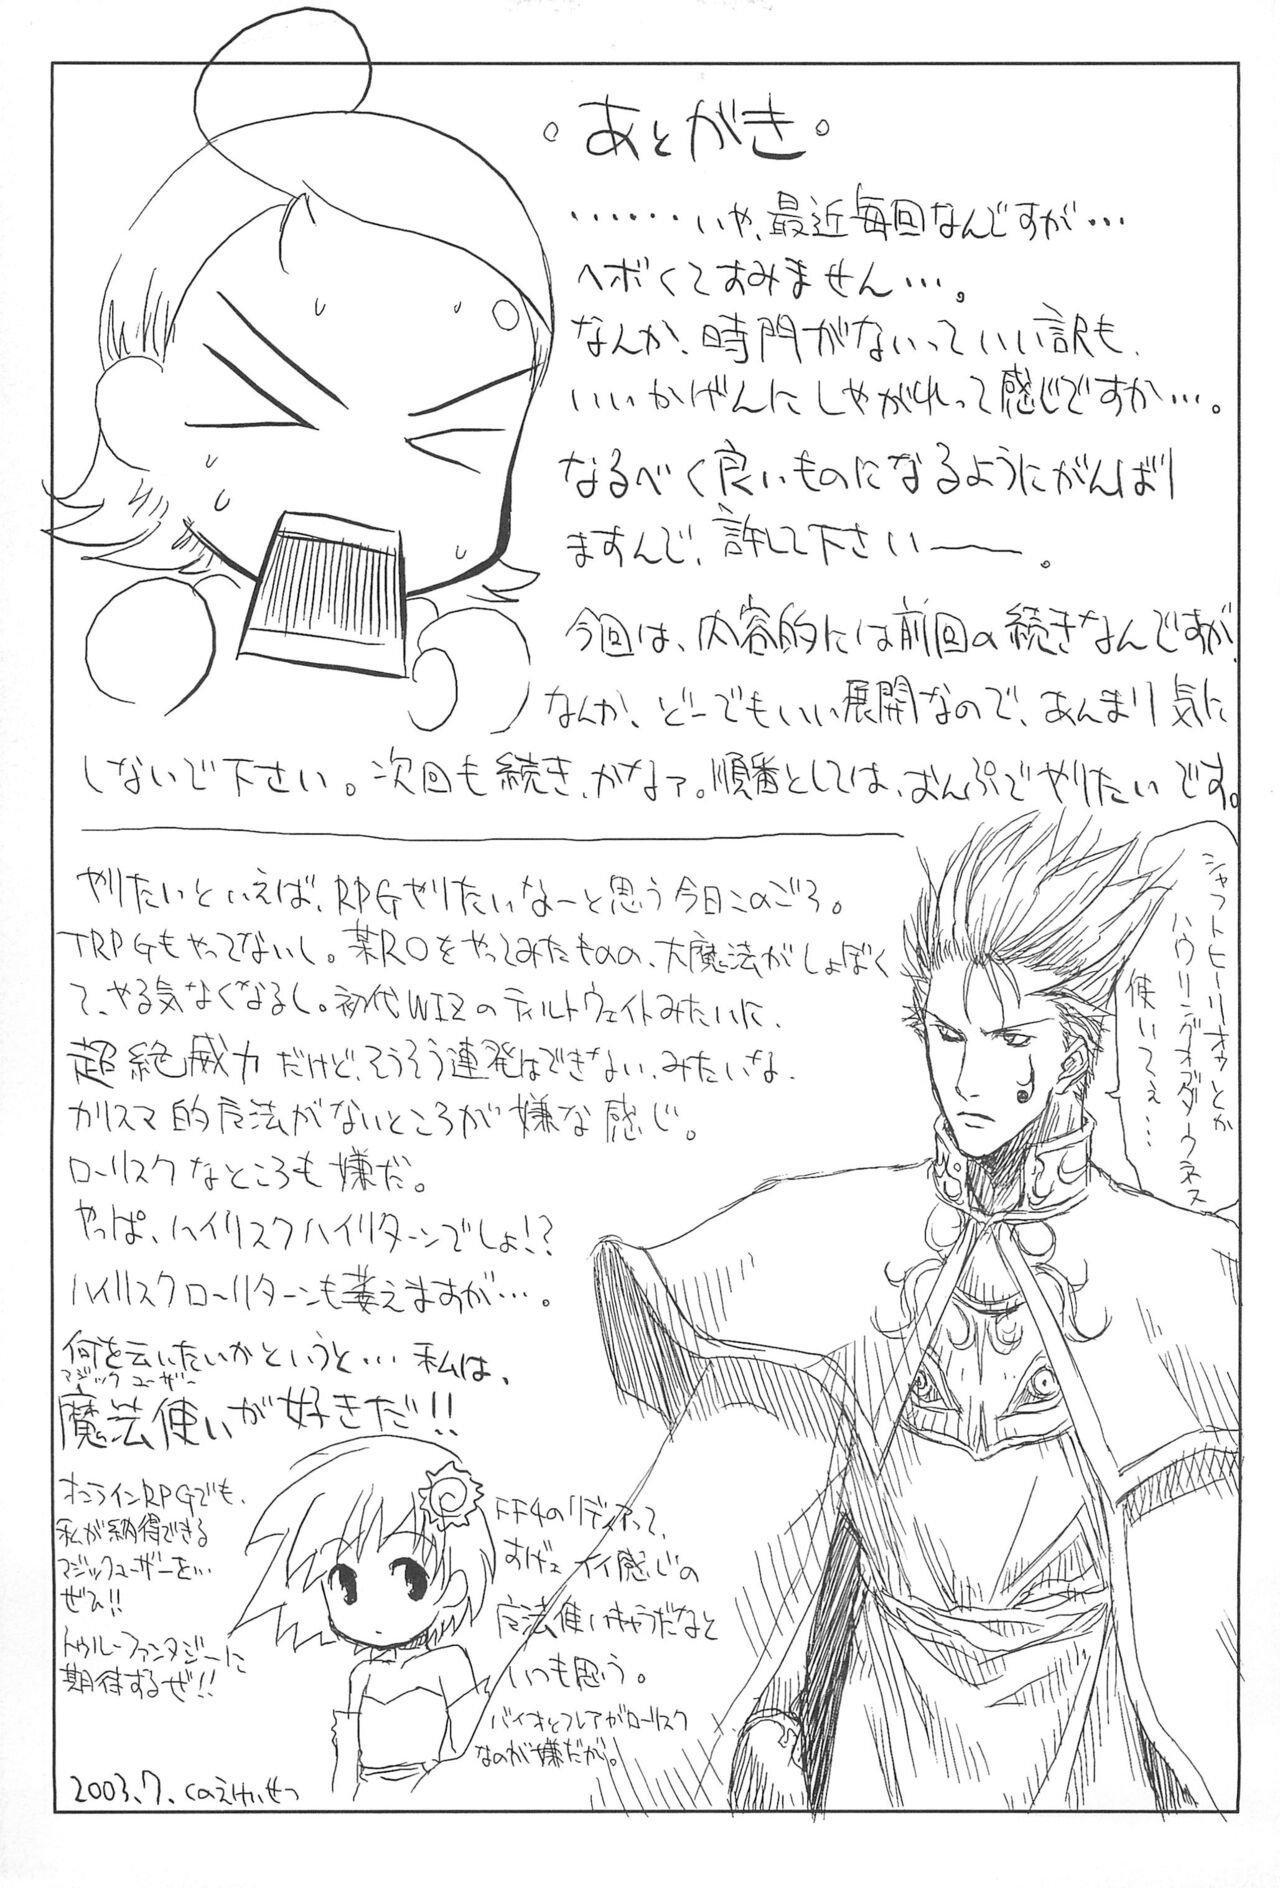 。あとがき。
……いや、最近毎回なんですが…
ヘボくてすみません…。
なんか、時間がないっていい訳も、
いいかげんにしやがれって感じですか…。
なるべく良いものになるようにがんばり
ますんで、許して下さい――。
今回は、内容的には前回の続きなんですが、
なんか、どーでもいい展開なので、あんまり気に
しないで下さい。次回も続き、かなァ。順番としては、おんぷでやりたいです。
やりたいといえば、RPGやりたいなーと思う今日このごろ。
TRPGもやってないし。某ROをやってみたものの、大魔法がしょぼく
て、やる気なくなるし。初代WIZのティルトウェイトみたいに、
超絶威力だけど、そうそう連発はできない、みたいな、
カリスマ的魔法がないところが嫌な感じ。
ローリスクなところも嫌だ。
やっぱ、ハイリスクハイリターンでしょ!?
ハイリスクローリターンも萎えますが…。
何を云いたいかというと…私は、
マジックユーザー
魔法使いが好きだ!!
オンラインRPGでも、
私が納得できる
マジックユーザーを…
ぜひ!!
トゥルーファンタジーに
期待するぜ!!
FF4のリディアって、
すげェイイ感じの
魔法使いきゃらだなと
いつも思う。
バイオとフレアがローリスク
なのが嫌だが。
シャフトヒーリオゥとか
ハウリングオブダークネス
使いてぇ…
2003.7.くのえけいせつ